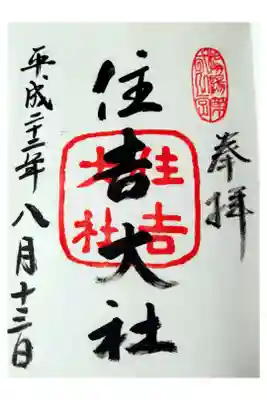 奉拝
住吉大社
住吉大社
平成二十三年八月十三日